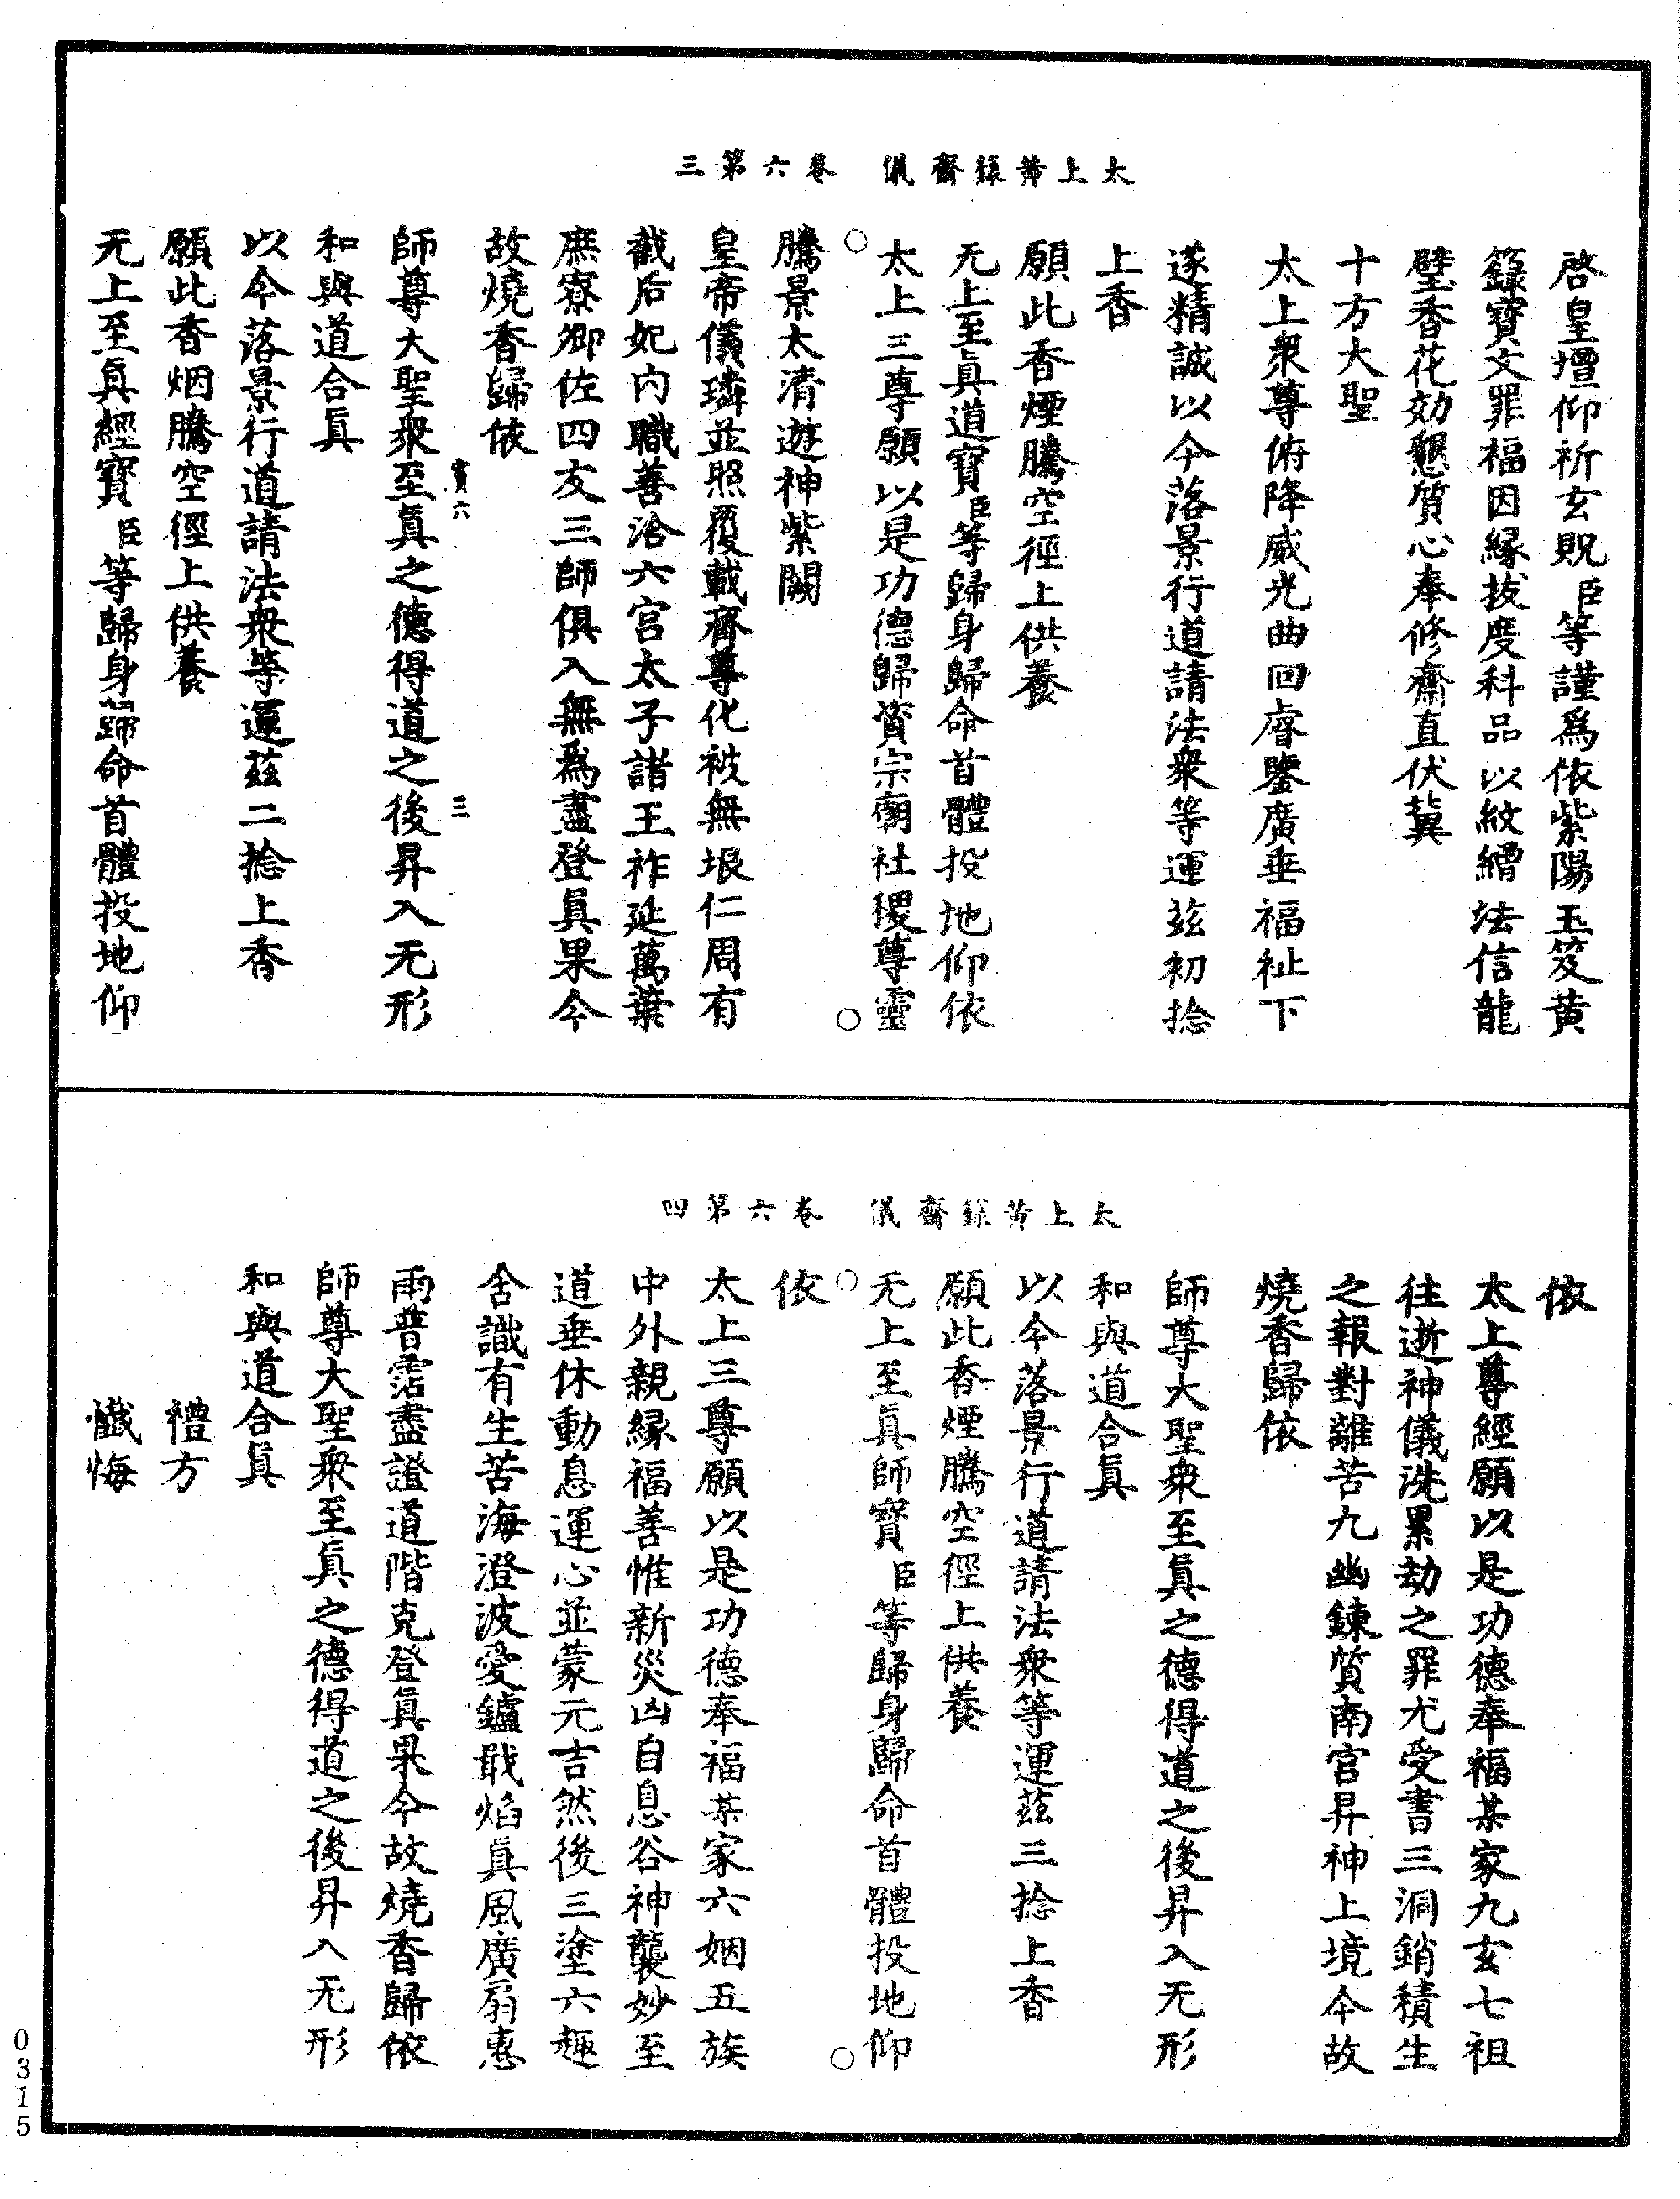 太上黃籙齋儀　卷六第三
啓皇壇仰祈玄貺臣等謹爲依紫陽玉笈黃
籙寶文罪福因緣拔度科品以紋繒法信龍
璧香花効懇質心奉修齋直伏冀
十方大聖
太上衆尊俯降威光曲回睿鑒廣垂福祉下
遂精誠以今落景行道請法衆等運茲初捻
上香
願此香煙騰空徑上供養
无上至眞道寶臣等歸身歸命首體投地仰依
太上三尊願以是功德歸資宗廟社稷尊靈
騰景太清遊神紫闕
皇帝儀璘並照覆載齊尊化被無垠仁周有
截后妃內職善洽六宮太子諸王祚延萬葉
庶寮卿佐四友三師俱入無爲盡登眞果今
故燒香歸依
賓六　三
師尊大聖衆至眞之德得道之後昇入无形
和與道合眞
以今落景行道請法衆等運茲二捻上香
願此香烟騰空徑上供養
无上至眞經寶臣等歸身歸命首體投地仰
太上黃籙齋儀　卷六第四
依
太上尊經願以是功德奉福某家九玄七祖
往逝神儀洗累劫之罪尤受書三洞銷積生
之報對離苦九幽鍊質南宮昇神上境今故
燒香歸依
師尊大聖衆至眞之德得道之後昇入无形
和與道合眞
以今落景行道請法衆等運茲三捻上香
願此香煙騰空徑上供養
无上至眞師寶臣等歸身歸命首體投地仰
依
太上三尊願以是功德奉福某家六姻五族
中外親緣福善惟新災凶自息谷神襲妙至
道垂休動息運心並蒙元吉然後三塗六趣
舍識有生苦海澄波愛鑪戢焰眞風廣扇惠
雨普霑盡證道階克登眞果今故燒香歸依
師尊大聖衆至眞之德得道之後昇入无形
和與道合眞
禮方
懺悔
0315